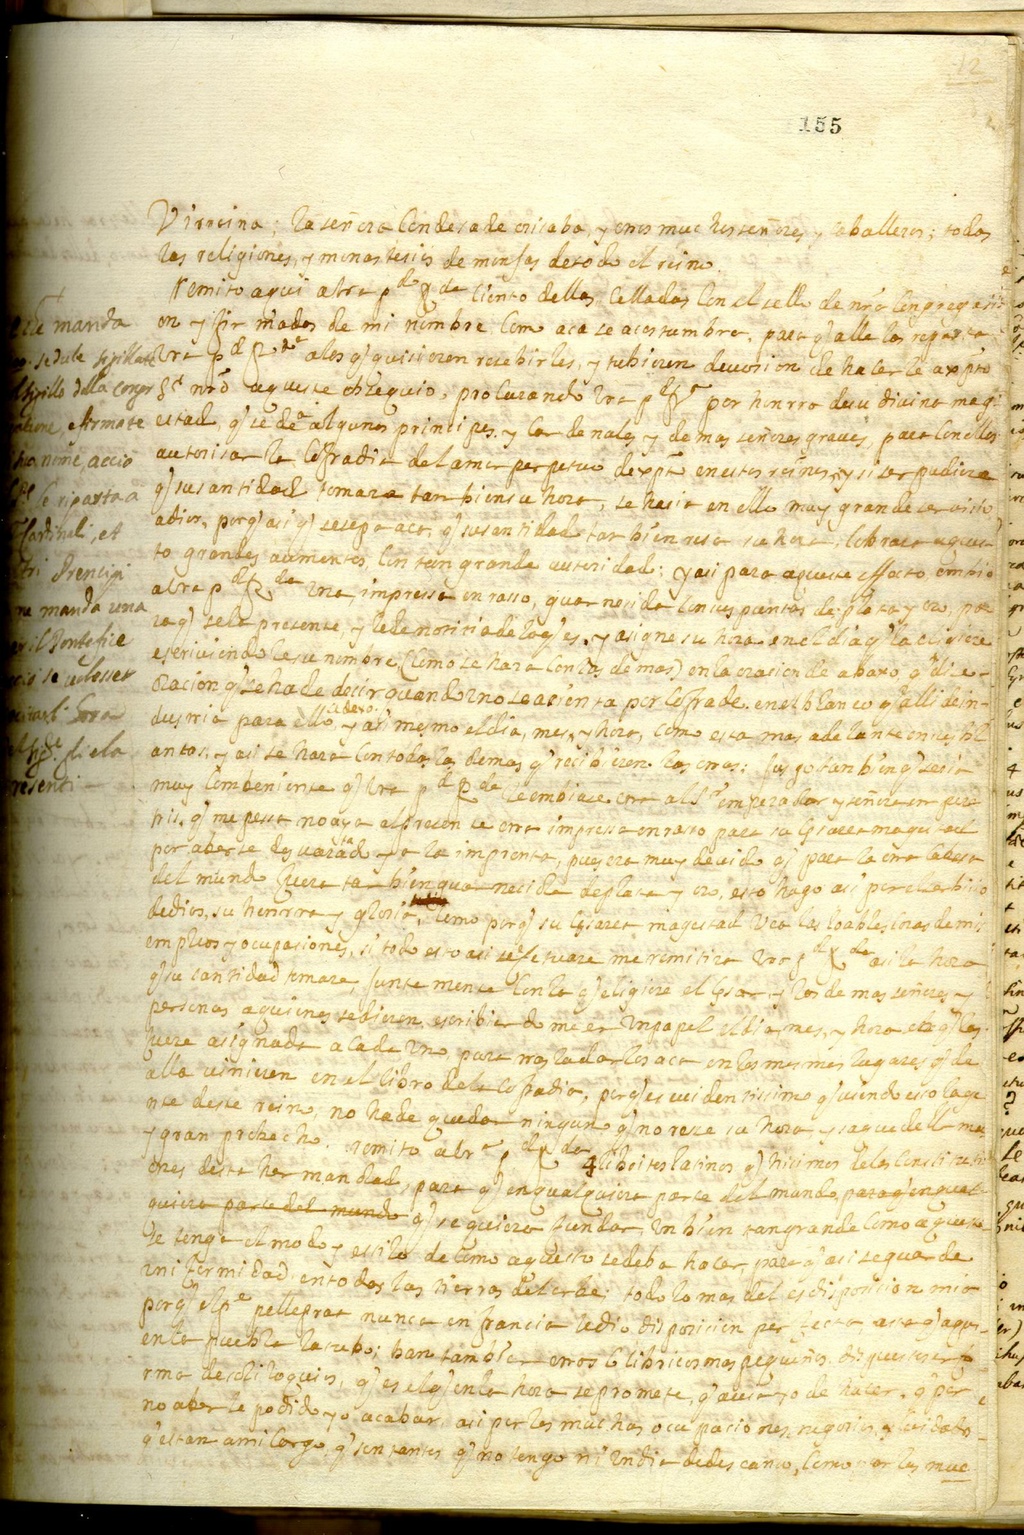 12
155
Virreina; la señora Condesa de orisaba, y otros muchos señores, y caballeros; todas
las religiones, y monasterios de monjas de todo el reino.
Remito aqui a Vra pd Rda ciento dellas selladas con el sello de nrã Congregasi
on y firmadas de mi nombre como aca se acostumbra, para q) alla las reparta
Vra pd Rda a los q) quisieren resebirles, y tubieren devosion de hacerle a xpto
Sr nrõ aqueste obsequio, procurando Vra pd Rda por honrra de su divina magi
estad, q) se dẽ a algunos principes, y Cardenales, y demas señores graves, para con ellos
autorisar la Cofradia del amor perpetuo de xptõ en estos reinos, y si ser pudiera
q) su santidad tomara tambien su hora, se hasia en ello muy grande servisio
a dios, porq) asi q) se sepa aca, q) su santidad tambien resa su hora, cobrara aques
to grandes aumentos, con tan grande autoridad; y asi para aqueste effecto, embio
a Vra pd Rda Una, impressa en raso, guarnesida con sus puntas de plata y oro, pa
ra q) se la presente, y le de notisia de lo q) es, y asigne su hora en el dia q) la eligiere
escriviendole su nombre (como se hara con los demas) en la orasion de abaxo, q) dise
Oracion q) se ha de decir quando uno se asienta por Cofrade. en el blanco q) alli de in-
dustria para ello se dexo. y asi mesmo el dia, mes, y hora, como esta mas adelante en sus bl
ancos, y asi se hara con todas las demas q) recibieren las otras: Jusgo tambien q) seria
muy combeniente q) Vra pd Rda le embiase otra al Sr emperador y señora empera
tris, q) me pesa no aya al presente otra impressa en raso para su Cesarea magestad
por aberse desvaratado ya la imprenta, pues era muy devido q) para la otra cabesa
del mundo fuera tambien guarnesida de plata y oro, esto hago asi por el servisio
de dios, su honrra y gloria, como porq) su Cesarea magestad vea las loables cosas de mis
empleos y ocupasiones, si todo esto asi se efetuare me remitira Vra pd Rda asi la hora
q) su santidad tomare, juntamente con la q) eligiere el Cesar, y los demas señores y
personas a quienes se dieren, escribiendome en un papel el dia, mes, y hora el q) les
fuere asignada a cada uno, para trasladarlos aca en los mesmos lugares q) de
alla vinieren en el libro de la Cofradia, porq) es evidentissimo q) viendo esto la ge
nte deste reino, no ha de quedar ninguno q) no rese su hora, y saque della mu
y gran probecho. remito a Vra pd Rda 4 libritos latinos q) hisimos de las constitusi
ones desta hermandad, para q) en qualquiera parte del mundo, para q) en qual-
quiera parte del mundo q) se quiera fundar, un bien tan grande como aqueste
se tenga el modo y estilo de como aquesto se deba hacer, para q) asi se guarde
uniformidad en todas las tierras del orbe; todo lo mas del es disposision mia
porq) el pe pellegrat nunca en francia le dio disposision perfecta asta q) aqui
en la puebla la tubo; ban tambien otros 6 libricos mas pequeños, de questos en fo
rma de soliloquios, q) es el q) en la hora se promete, q) avia yo de hacer, q) por
no aberle podido yo acabar, asi por las muchas ocupasiones, negosios, y cuidados
q) estan a mi cargo, q) son tantos q) no tengo ni un dia de descanso, como por las muc
manda
sigillate
sigillo della congr
firmate
nome, acciò
le riparta a
Cardinali, et
Prencipi
ne manda una
il Pontefice
se volesse
presenti